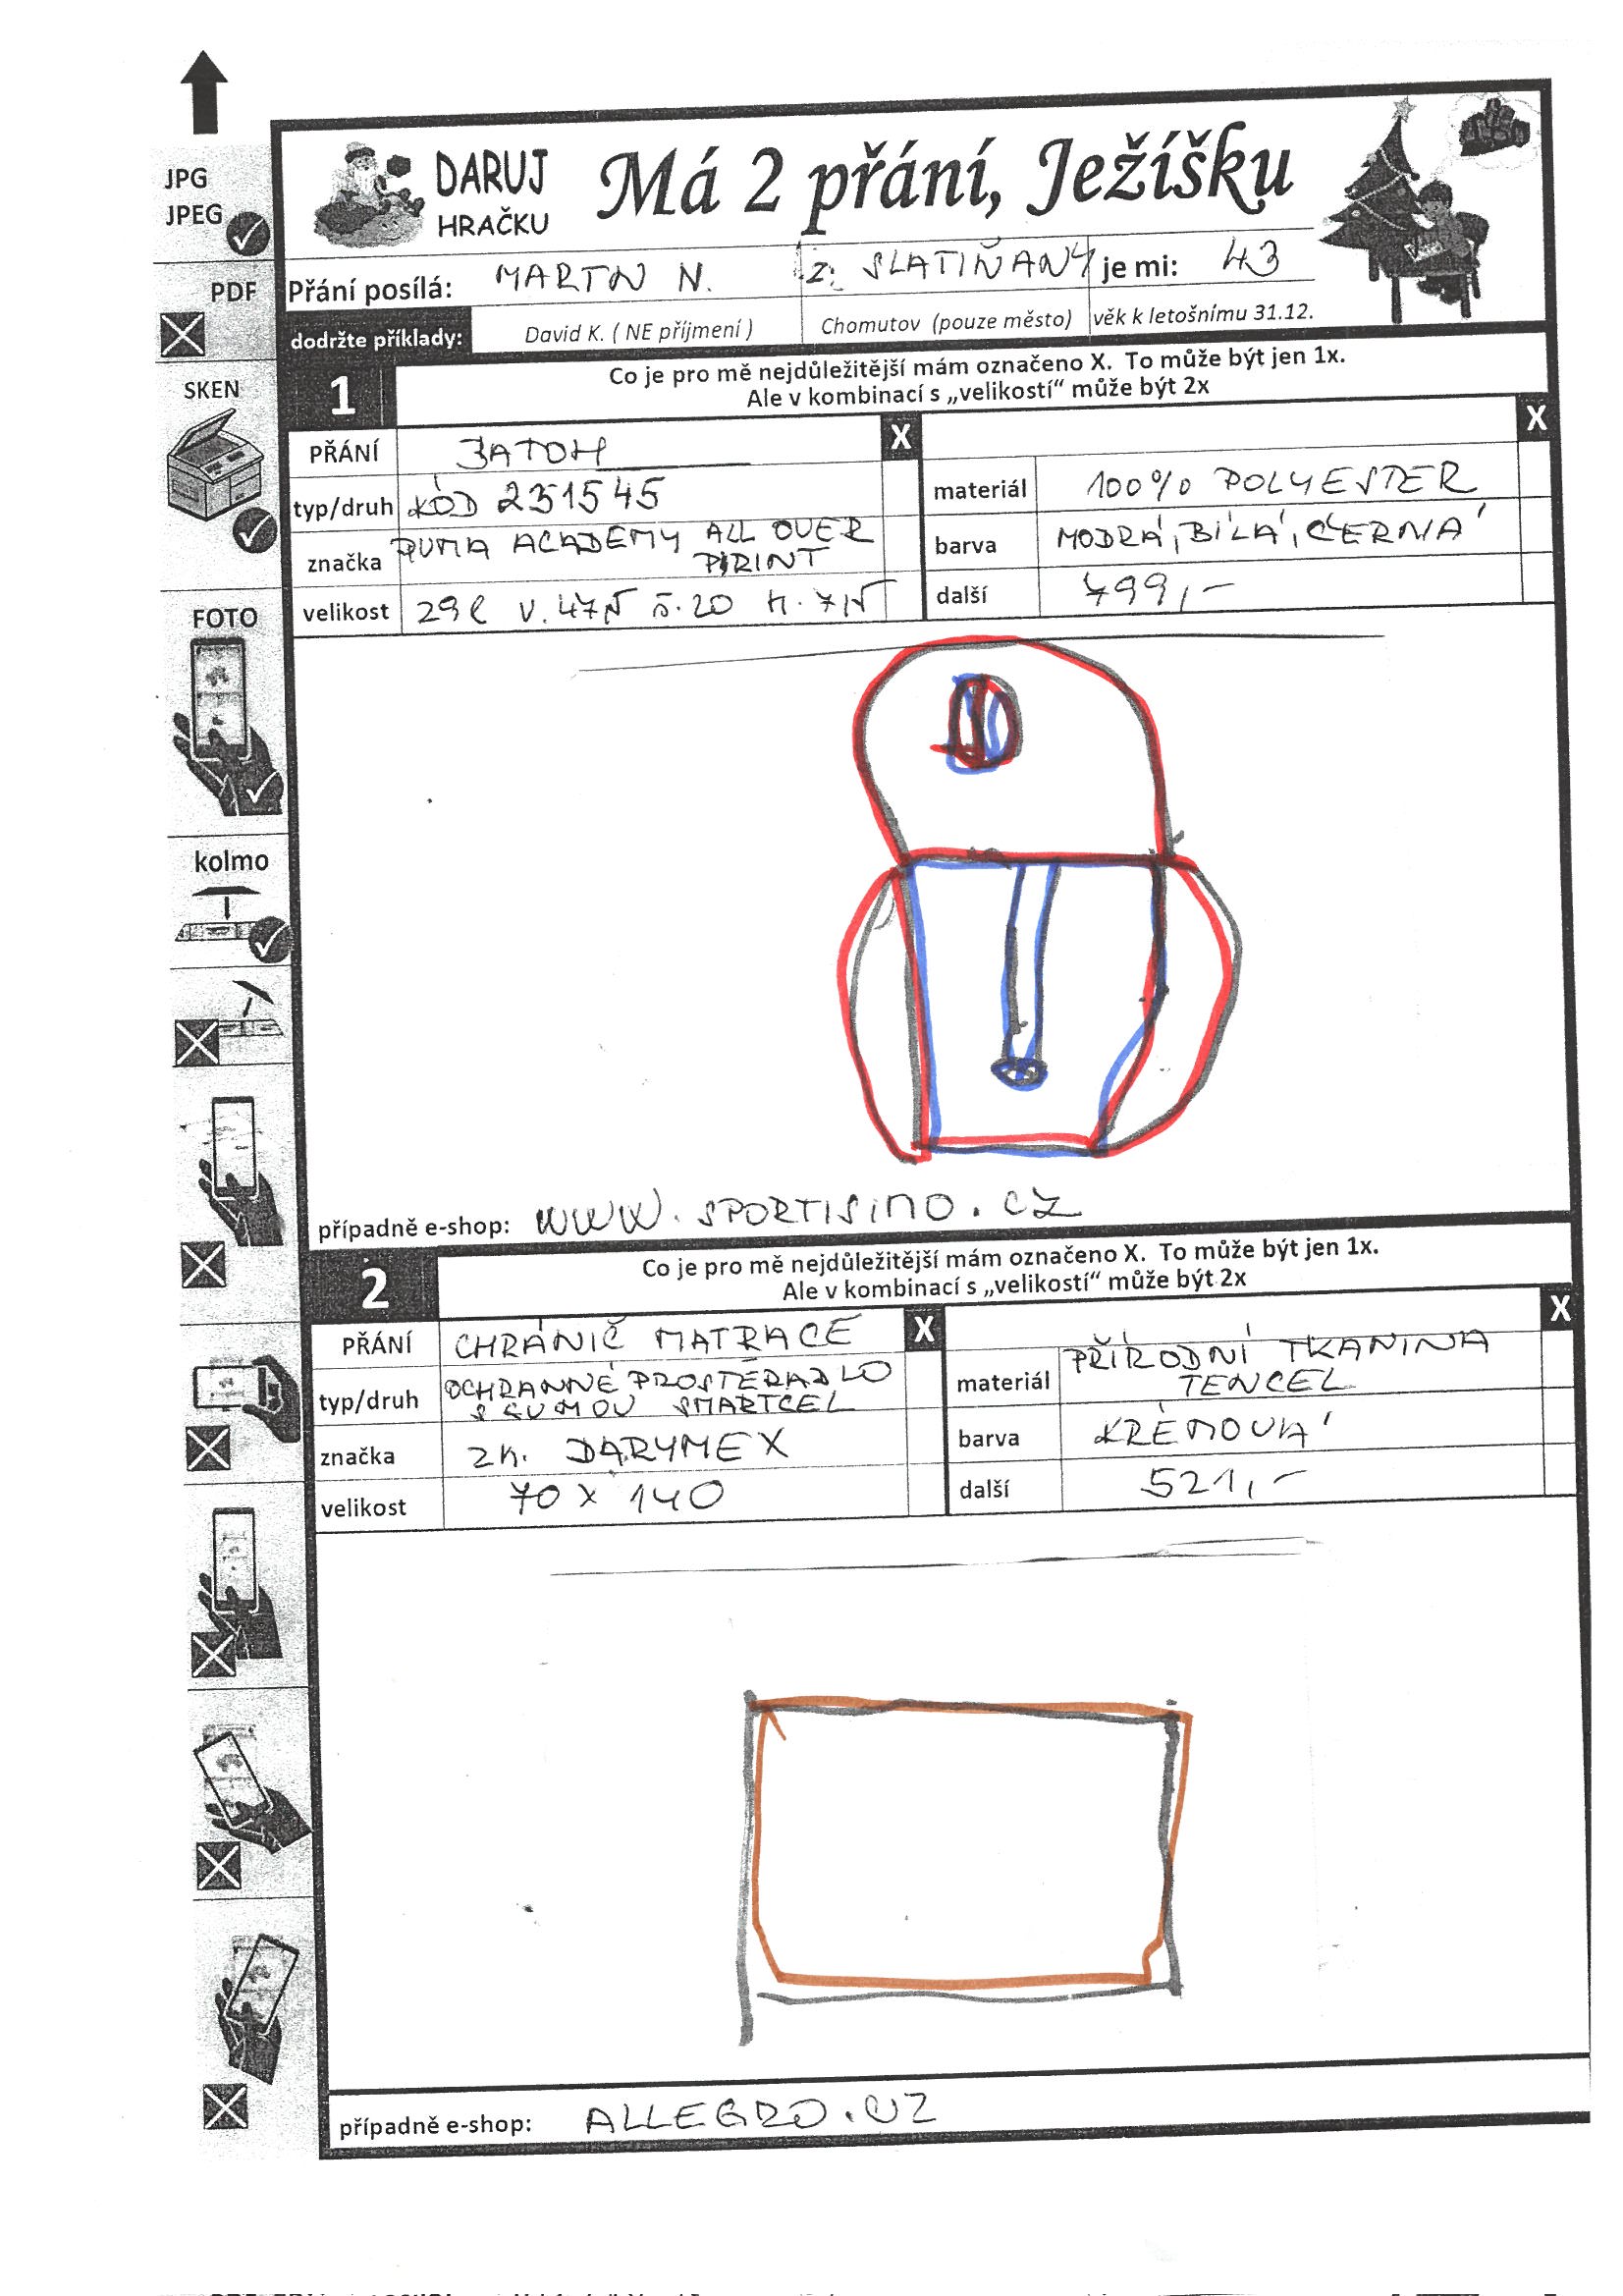 JPG
JPEG
PDF
SKEN
FOTO
kolmo
DARUJ
HRAČKU
Má 2 přání, Ježíšku
Přání posílá: MARTIN N. Z: SLATIŇANY je mi: 43
dodržte příklady: David K. ( NE příjmení ) Chomutov (pouze město) věk k letošnímu 31.12.
1 Co je pro mě nejdůležitější mám označeno X. To může být jen 1x.
Ale v kombinací s „velikostí“ může být 2x
PŘÁNÍ BATOH X X
typ/druh KÓD 231545 materiál 100% POLYESTER
značka PUMA ACADEMY ALL OVER
PRINT
barva MODRÁ, BÍLÁ, ČERNÁ
velikost 29l v. 47 š. 20 h. další 799,-
případně e-shop: WWW.SPORTISIMO.CZ
2 Co je pro mě nejdůležitější mám označeno X. To může být jen 1x.
Ale v kombinací s „velikostí“ může být 2x
PŘÁNÍ CHRÁNIČ MATRACE X X
typ/druh OCHRANNÉ PROSTĚRADLO
S GUMOU SMARTCEL
materiál PŘÍRODNÍ TKANINA
TENCEL
značka ZN. DARYMEX barva KRÉMOVÁ
velikost 70 X 140 další 521,-
případně e-shop: ALLEGRO.CZ